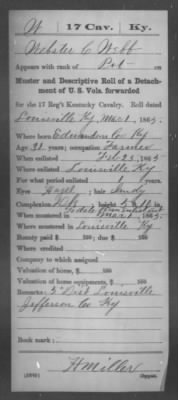 W | 17 Cav. | Ky.
Webster C Webb
Appears with rank of Pvt
Muster and Descriptive Roll of a Detach-
ment of U. S. Vols. forwarded
for the 17 Reg't Kentucky Cavalry. Roll dated
Louisville Ky Mar 1, 1865.
Where born Edmondson Co Ky
Age 21 years; occupation Farmer
When enlisted Feb 23, 1865
Where enlisted Louisville Ky
For what period enlisted 1 years
Eyes Hazel; hair Sandy
Complexion height
When mustered in Mar 1, 1865.
Where mustered in Louisville Ky
Bounty paid $ 100; due $ 100
Where credited
Company to which assigned
Valuation of horse, $ 100
Valuation of horse equipments, $ 100
Remarks: 5" Dist Louisville
Jefferson Co Ky
Book mark:
H Miller
Copyist.